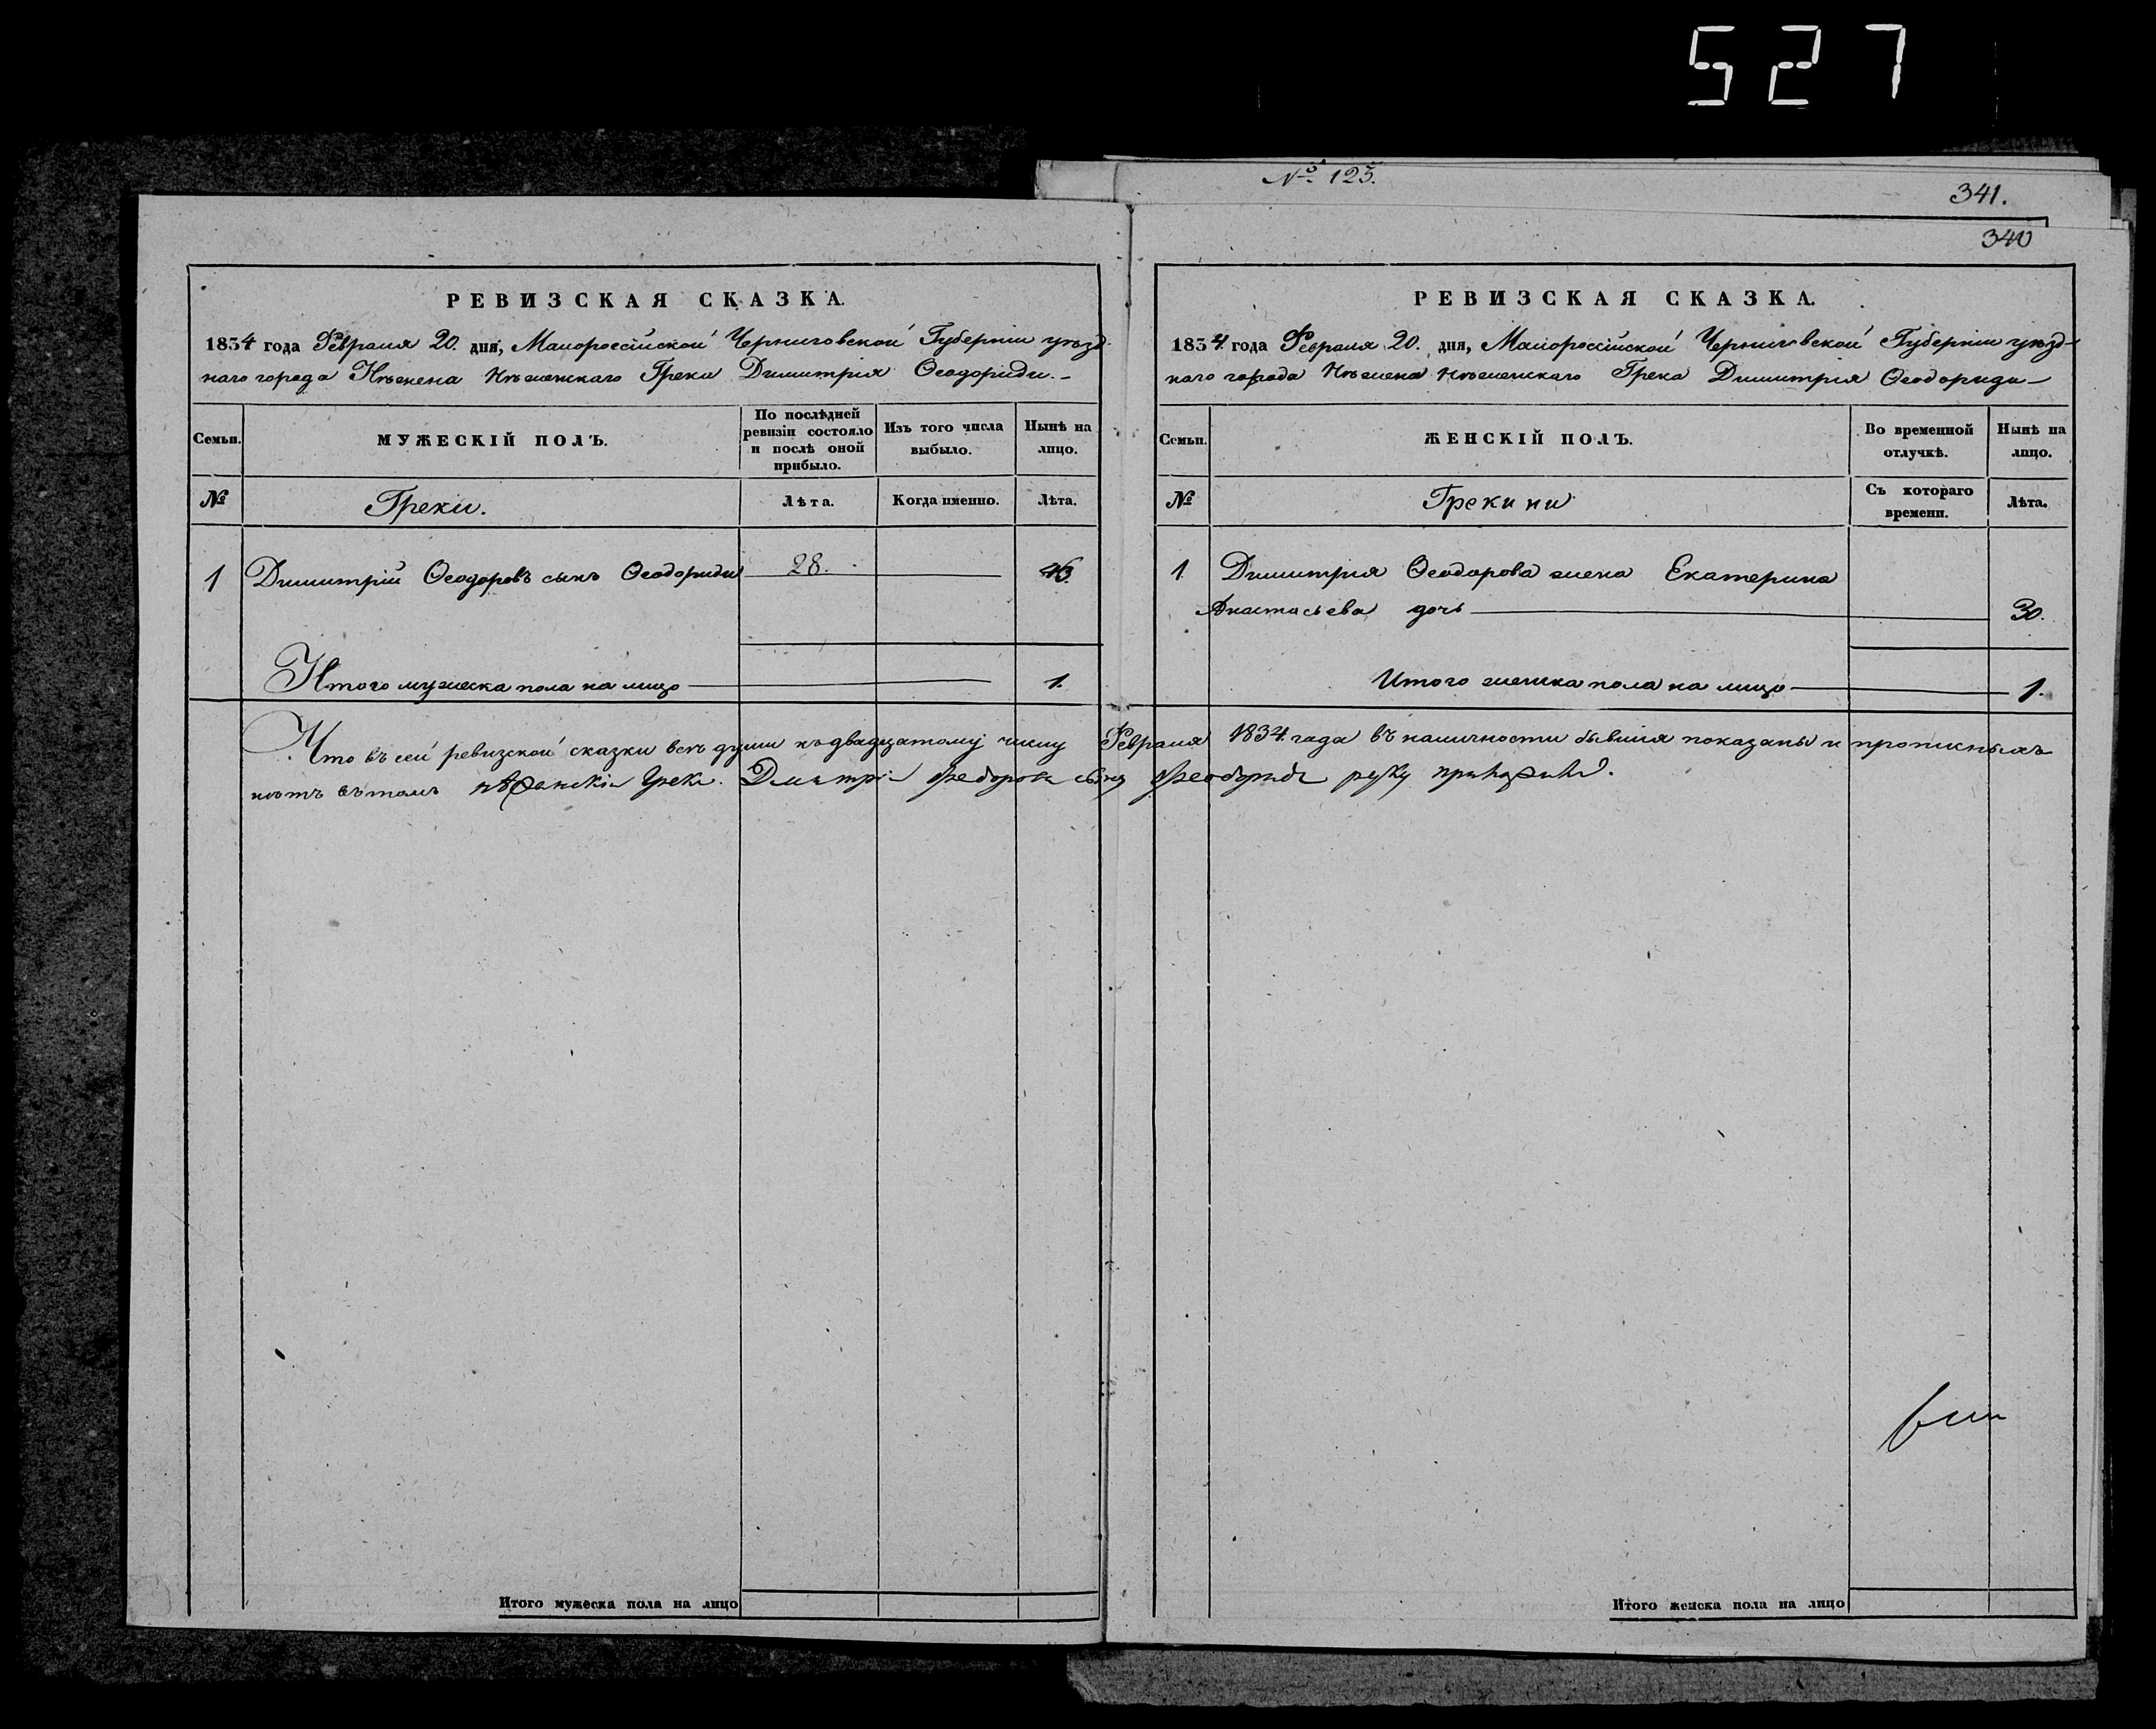 527
№ 123.
341.
340
РЕВИЗСКАЯ СКАЗКА.
1834 года Февраля 20. дня, Малороссійской Черниговской Губерніи уѣзд-
наго города Нѣжена Нѣженскаго Грека Димитрія Ѳеодориди.-
Семьи.
МУЖЕСКІЙ ПОЛЪ.
По послѣдней ревизіи состояло и послѣ оной прибыло.
Изъ того числа выбыло.
Нынѣ на лицо.
№
Греки.
Лѣта.
Когда именно.
Лѣта.
1 Димитрій Ѳеодоровъ сынъ Ѳеодориди 28.
Итого мужеска пола на лицо 1.
РЕВИЗСКАЯ СКАЗКА.
1834 года Февраля 20. дня, Малороссійской Черниговской Губерніи уѣзд-
наго города Нѣжена Нѣженскаго Грека Димитрія Ѳеодориди-
Семьи.
ЖЕНСКІЙ ПОЛЪ.
Во временной отлучкѣ.
Нынѣ на лицо.
№
Грекини
Съ котораго времени.
Лѣта.
1. Димитрія Ѳеодорова жена Екатерина
Анастасьева дочь 30.
Итого женска пола на лицо 1.
Что въ сей ревизской сказки всѣ души къ двадцатому числу Февраля 1834 года въ наличности бывшія показаны и прописныхъ
нѣтъ въ томъ нѣженскій Грекъ Дмитрій Федоровъ сынъ Феодориди руку приложилъ.
Итого мужеска пола на лицо
Итого женска пола на лицо